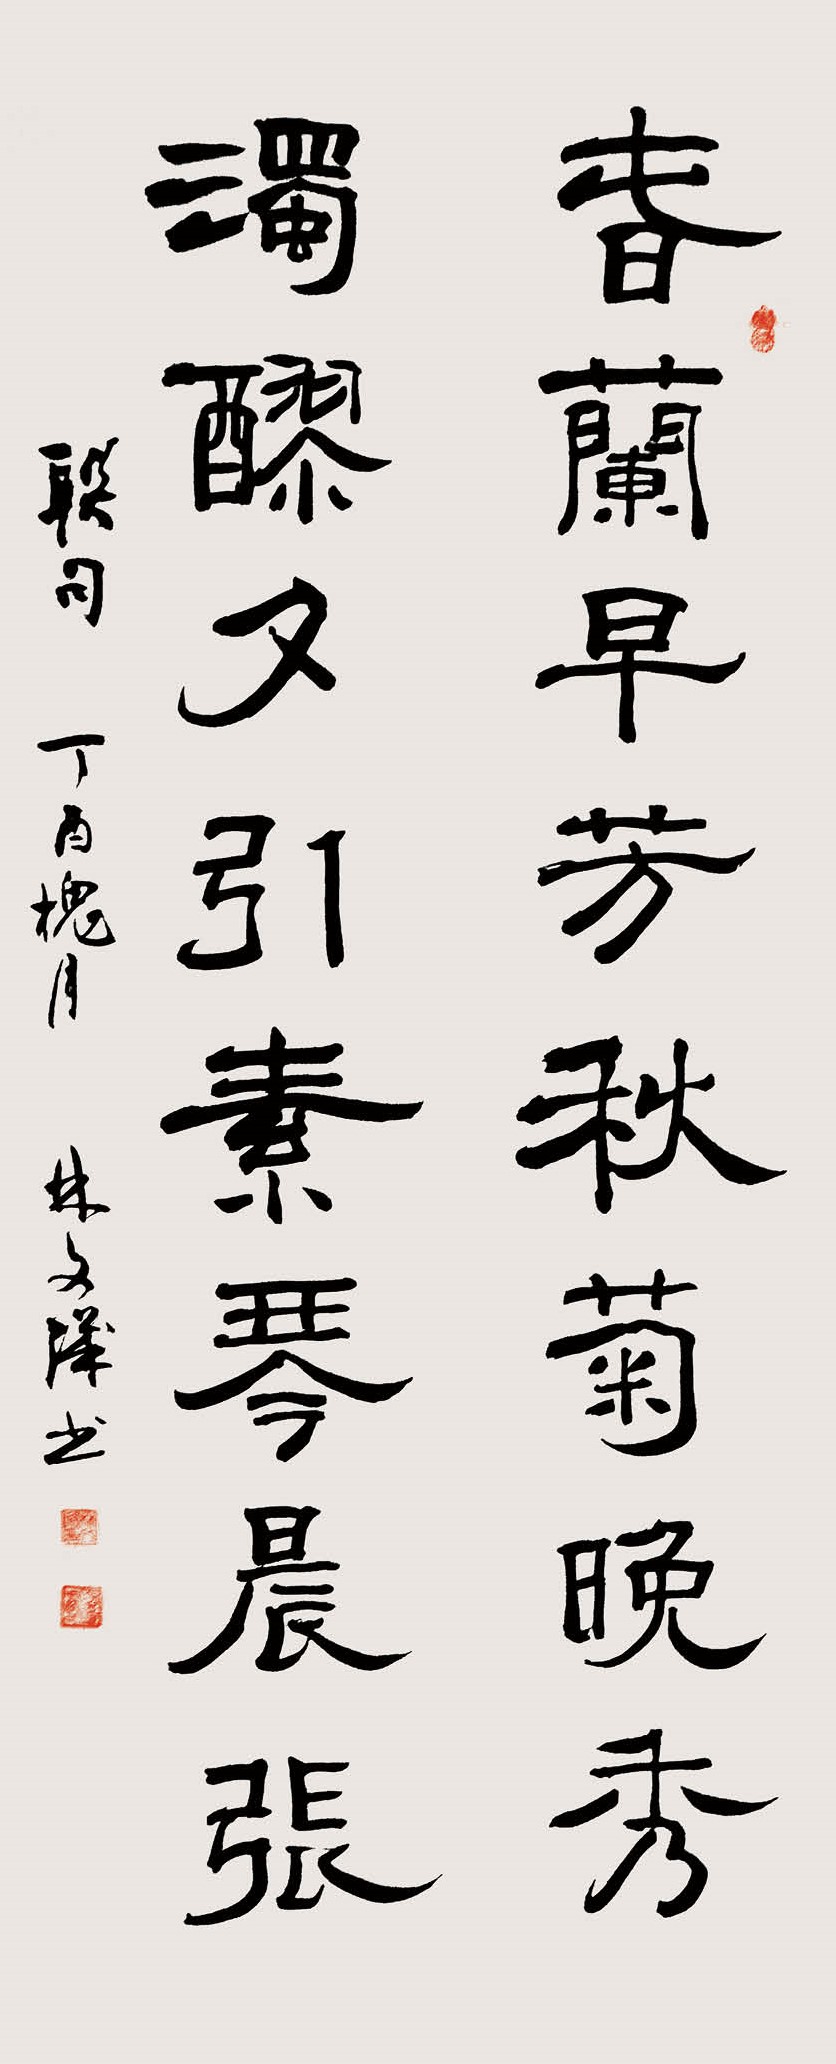 春蘭早芳秋菊晚秀
濁醪夕引素琴晨張
联句 丁酉槐月 林文 书